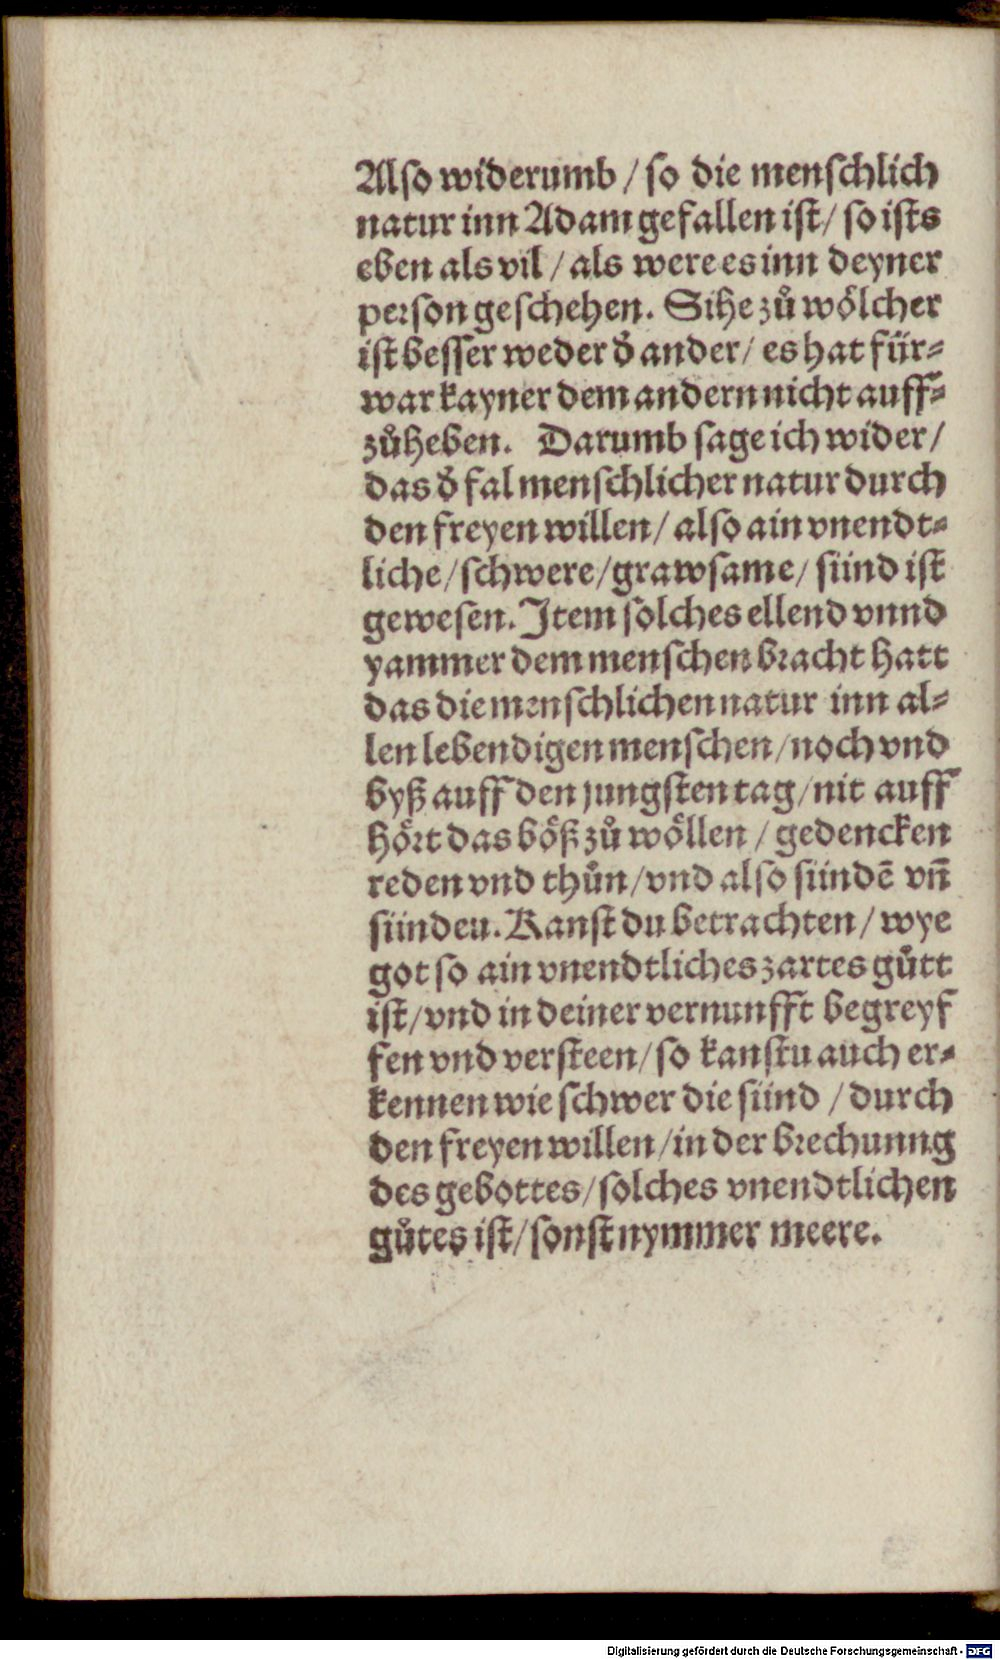 Also widerumb / so die menschlich
natur inn Adam gefallen ist / so ists
eben als vil / als were es inn deyner
person geschehen. Sihe zů wölcher
ist besser weder d̕ ander / es hat für⸗
war kayner dem andern nicht auff⸗
zůheben. Darumb sage ich wider /
das d̕ fal menschlicher natur durch
den freyen willen / also ain vnendt⸗
liche / schwere / grawsame / sünd ist
gewesen. Item solches ellend vnnd
yammer dem menschen bracht hatt
das die menschlichen natur inn al⸗
len lebendigen menschen / noch vnd
byß auff den jungsten tag / nit auff
hört das böß zů wöllen / gedencken
reden vnd thůn / vnd also sündē vn̄
sünden. Kanst du betrachten / wye
got so ain vnendtliches zartes gůtt
ist / vnd in deiner vernunfft begreyf
fen vnd versteen / so kanstu auch er⸗
kennen wie schwer die sünd / durch
den freyen willen / in der brechunng
des gebottes / solches vnendtlichen
gůtes ist / sonst nymmer meere.
Digitalisierung gefördert durch die Deutsche Forschungsgemeinschaft - DFG